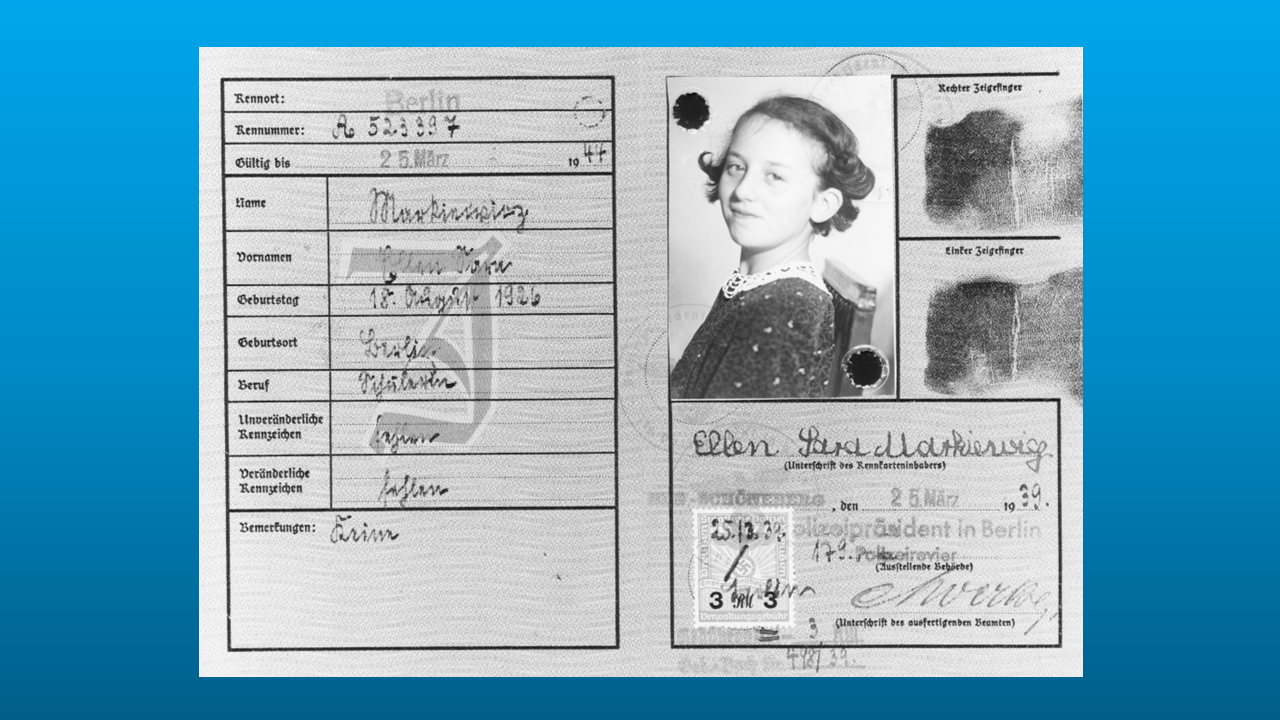 Kennort: Berlin
Kennummer: A 523397
Gültig bis 25. März 1944
Name Markiewicz
Vornamen Ellen Sara
Geburtstag 18. August 1926
Geburtsort Berlin
Beruf Schülerin
Unveränderliche Kennzeichen fehlen
Veränderliche Kennzeichen fehlen
Bemerkungen: Keine
J
Rechter Zeigefinger
Linker Zeigefinger
Ellen Sara Markiewicz
(Unterschrift des Kennkarteninhabers)
SCHÖNEBERG, den 25. März 1939.
Polizeipräsident in Berlin
179. Polizeirevier
(Ausstellende Behörde)
(Unterschrift des ausfertigenden Beamten)
25./3.39.
3 RM 3
Verwaltungsgebühr
3 RM.
498/39.